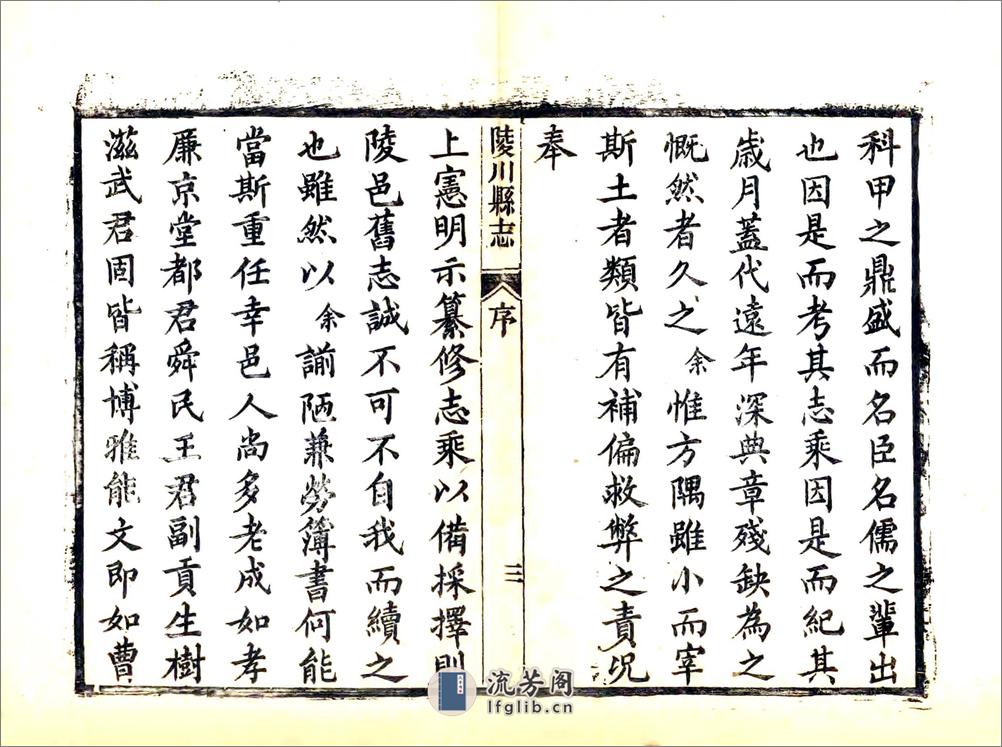 科甲之鼎盛而名臣名儒之輩出
也因是而考其志乘因是而紀其
歲月蓋代遠年深典章殘缺為之
慨然者久之余惟方隅雖小而宰
斯土者類皆有補偏救弊之責况
奉
陵川縣志 序 三
上憲明示纂修志乘以備採擇則
陵邑舊志誠不可不自我而續之
也雖然以余謭陋兼勞簿書何能
當斯重任幸邑人尚多老成如孝
廉京堂都君舜民王君副貢生樹
滋武君固皆稱博雅能文即如曹
流芳阁
lfglib.cn